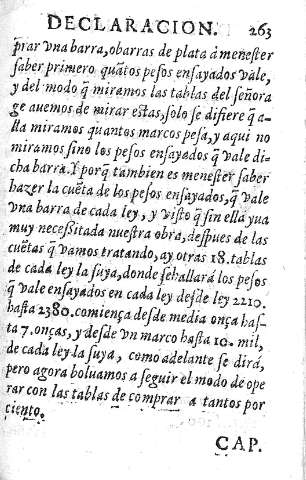 DECLARACION. 263
prar vna barra, o barras de plata à menester
saber primero quãtos pesos ensayados vale,
y del modo q̃ miramos las tablas del señora
ge auemos de mirar estas, solo se difiere q̃ a-
lla miramos quantos marcos pesa, y aqui no
miramos sino los pesos ensayados q̃ vale di-
cha barra. Y porq̃ tambien es menester saber
hazer la cuẽta de los pesos ensayados, q̃ vale
vna barra de cada ley, y visto q̃ sin ella yua
muy necessitada nuestra obra, despues de las
cuẽtas q̃ vamos tratando, ay otras 18. tablas
de cada ley la suya, donde se hallarâ los pesos
q̃ vale ensayados en cada ley desde ley 2210.
hasta 2380. comiença desde media onça has-
ta 7. onças, y desde vn marco hasta 10. mil,
de cada ley la suya, como adelante se dirá,
pero agora boluamos a seguir el modo de ope
rar con las tablas de comprar a tantos por
ciento.
CAP.